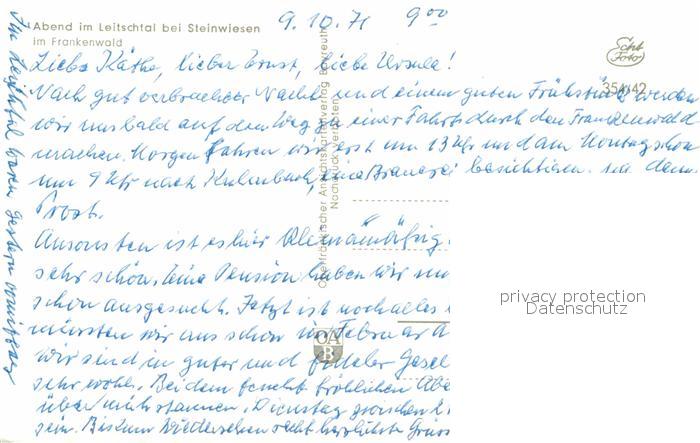 9.10.71 9⁰⁰
Abend im Leitschtal bei Steinwiesen
im Frankenwald
Echt
Foto
354/42
Liebe Käthe, lieber Ernst, liebe Ursula!
Nach gut verbrachter Nacht und einem guten Frühstück werden
wir uns bald auf den Weg zu einer Fahrt durch den Frankenwald
machen. Morgen fahren wir erst um 13 Uhr und am Montag schon
um 9 Uhr nach Kulmbach, eine Brauerei besichtigen. na dann
Prost.
Ansonsten ist es hier
sehr schön. Eine Pension haben wir uns
schon ausgesucht. Jetzt ist noch alles
müssten wir uns schon im Februar A
wir sind in guter und fideler Gesel
sehr wohl. Bei dem feucht fröhlichen Abe
über Dienstag zwischen
sein. Bis zum Wiedersehen recht herzliche Grüss
Im Leitschtal waren gestern vormittag
Oberfränkischer Ansichtskartenverlag Bayreuth
Nachdruck verboten
OA
B
privacy protection
Datenschutz